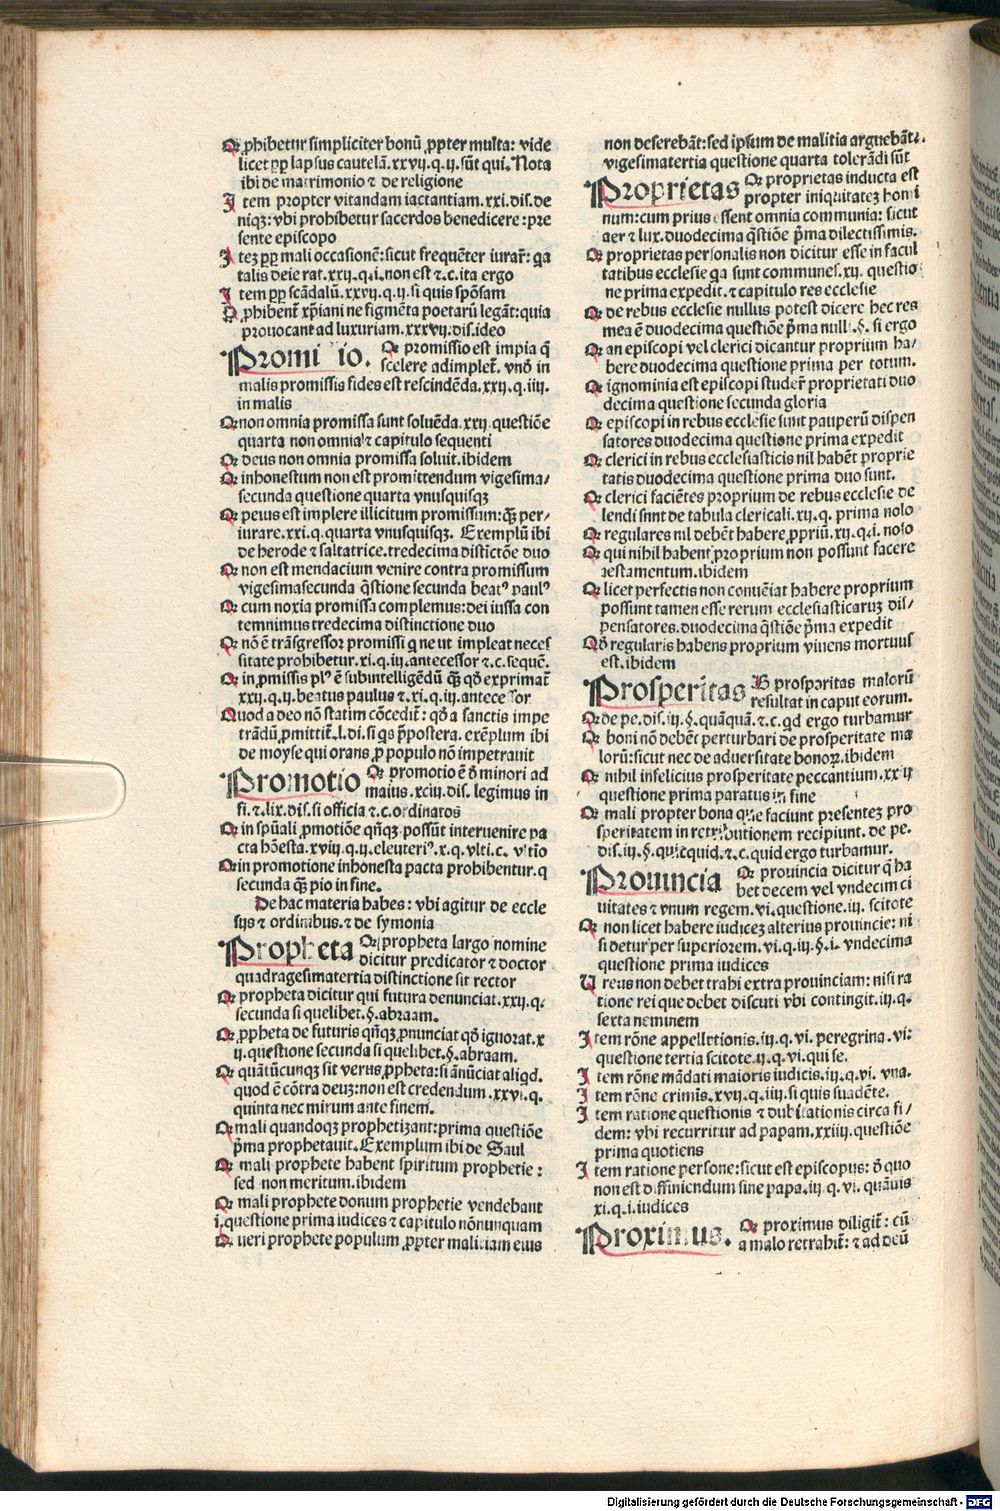 Qꝛ ꝓhibetur simpliciter bonū ꝓpter multa: vide
licet ꝓp lapsus cautelā.xxvij.q.ij.sūt qui. Nota
ibi de matrimonio ⁊ de religione
Item propter vitandam iactantiam.xxi.dis.de
niqꝫ: vbi prohibetur sacerdos benedicere: pre
sente episcopo
Iteꝫ ꝓp mali occasionē: sicut frequēter iurar̄: qa
talis deierat.xxij.q.i.non est ⁊.c.ita ergo
Item ꝓp scādalū.xxvij.q.ij.si quis spōsam
Qꝛ ꝓhibent̄ xp̄iani ne figmēta poetarū legāt: quia
prouocant ad luxuriam.xxxvij.dis.ideo
Promissio. Qꝛ promissio est impia q̄
scelere adimplet̄. vnō in
malis promissis fides est rescindēda.xxij.q.iiij.
in malis
Qꝛ non omnia promissa sunt soluēda.xxij.questiōe
quarta non omnia ⁊ capitulo sequenti
Qꝛ deus non omnia promissa soluit.ibidem
Qꝛ inhonestum non est promittendum vigesima/
secunda questione quarta vnusquisqꝫ
Qꝛ peius est implere illicitum promissum: qꝫ per/
iurare.xxi.q.quarta vnusquisqꝫ. Exemplū ibi
de herode ⁊ saltatrice.tredecima distictōe duo
Qꝛ non est mendacium venire contra promissum
vigesimasecunda q̄stione secunda beatꝰ paulꝰ
Qꝛ cum noxia promissa complemus: dei iussa con
temnimus tredecima distinctione duo
Qꝛ nō ē trāsgressor promissi q ne ut impleat neces
sitate prohibetur.xi.q.iij.antecessor ⁊.c.sequē.
Qꝛ in ꝓmissis plꝰ ē subintelligēdū qꝫ qō exprimat̄
xxij.q.ij.beatus paulus ⁊.xi.q.iij.antecessor
Quod a deo nō statim cōcedit̄: qō a sanctis impe
trādū ꝓmittit̄.l.di.si qs p̄postera. exēplum ibi
de moyse qui orans ꝓ populo nō impetrauit
Promotio Qꝛ promotio ē ō minori ad
maius.xciij.dis. legimus in
fi.⁊.lix.dis.si officia ⁊.c.ordinatos
Qꝛ in spūali ꝓmotiōe qn̄qꝫ possūt interuenire pa
cta hōesta.xviij.q.ij.eleuteriꝰ.x.q.vlti.c. vltīo
Qꝛ in promotione inhonesta pacta prohibentur.q
secunda qꝫ pio in fine.
De hac materia habes: vbi agitur de eccle
sijs ⁊ ordinibus.⁊ de symonia
Propheta Qꝛ propheta largo nomine
dicitur predicator ⁊ doctor
quadragesimatertia distinctione sit rector
Qꝛ propheta dicitur qui futura denunciat.xxij.q.
secunda si quelibet.§.abraam.
Qꝛ ꝓpheta de futuris qn̄qꝫ ꝓnunciat qō ignorat.x
ij.questione secunda si quelibet.§.abraam.
Qꝛ quātūcunqꝫ sit verus ꝓpheta: si ānūciat aliqd.
quod ē cōtra deuꝫ: non est credendum.xxvi.q.
quinta nec mirum ante finem.
Qꝛ mali quandoqꝫ prophetizant: prima questiōe
p̄ma prophetauit. Exemplum ibi de Saul
Qꝛ mali prophete habent spiritum prophetie:
sed non meritum.ibidem
Qꝛ mali prophete donum prophetie vendebant
i.questione prima iudices ⁊ capitulo nōnunquam
Qꝛ ueri prophete populum ꝓpter maliciam eius
non deserebāt: sed ipsum de malitia arguebāt.
vigesimatertia questione quarta tolerādi sūt
Proprietas Qꝛ proprietas inducta est
propter iniquitateꝫ homi
num: cum prius essent omnia communia: sicut
aer ⁊ lux. duodecima q̄stiōe p̄ma dilectissimis.
Qꝛ proprietas personalis non dicitur esse in facul
tatibus ecclesie qa sunt communes.xij. questio
ne prima expedit.⁊ capitulo res ecclesie
Qꝛ de rebus ecclesie nullus potest dicere hec res
mea ē duodecima questiōe p̄ma null .§. si ergo
Qꝛ an episcopi vel clerici dicantur proprium ha/
bere duodecima questione prima per totum.
Qꝛ ignominia est episcopi studer̄ proprietati duo
decima questione secunda gloria
Qꝛ episcopi in rebus ecclesie sunt pauperū dispen
satores duodecima questione prima expedit
Qꝛ clerici in rebus ecclesiasticis nil habēt proprie
tatis duodecima questione prima duo sunt.
Qꝛ clerici faciētes proprium de rebus ecclesie de
lendi sunt de tabula clericali.xij.q. prima nolo
Qꝛ regulares nil debēt habere ꝓpriū.xij.q.i. nolo
Qꝛ qui nihil habent proprium non possunt facere
testamentum.ibidem
Qꝛ licet perfectis non conuēiat habere proprium
possunt tamen esse rerum ecclesiasticaruꝫ dis/
pensatores.duodecima q̄stiōe p̄ma expedit
Qō regularis habens proprium viuens mortuus
est.ibidem
Prosperitas Qꝛ prosperitas malorū
resultat in caput eorum.
Qꝛ de pe.dis.iij.§.quāquā.⁊.c.qd ergo turbamur
Qꝛ boni nō debēt perturbari de prosperitate ma
lorū: sicut nec de aduersitate bonoꝝ.ibidem
Qꝛ nihil infelicius prosperitate peccantium.xxiij
questione prima paratus in fine
Qꝛ mali propter bona que faciunt presenteꝫ pro
speritatem in retributionem recipiunt. de pe.
dis.iij.§.quicquid.⁊.c.quid ergo turbamur.
Prouincia Qꝛ prouincia dicitur q̄ ha
bet decem vel vndecim ci
uitates ⁊ vnum regem.vi.questione.iij. scitote
Qꝛ non licet habere iudiceꝫ alterius prouincie: ni
si detur per superiorem.vi.q.iij.§.i. vndecima
questione prima iudices
Ut reus non debet trahi extra prouinciam: nisi ra
tione rei que debet discuti vbi contingit.iij.q.
sexta neminem
Item rōne appelletionis.iij.q.vi. peregrina.vi:
questione tertia scitote.ij.q.vi.qui se.
Item rōne mādati maioris iudicis.iij.q.vi. vna.
Item rōne crimīs.xvij.q.iiij.si quis suadēte.
Item ratione questionis ⁊ dubitationis circa fi/
dem: vbi recurritur ad papam.xxiiij.questiōe
prima quotiens
Item ratione persone: sicut est episcopus: ō quo
non est diffiniendum sine papa.iij.q.vi. quāuis
xi.q.i.iudices
Proximus. Qꝛ proximus diligit̄: cū
a malo retrahit̄: ⁊ ad deū
Digitalisierung gefördert durch die Deutsche Forschungsgemeinschaft - DFG